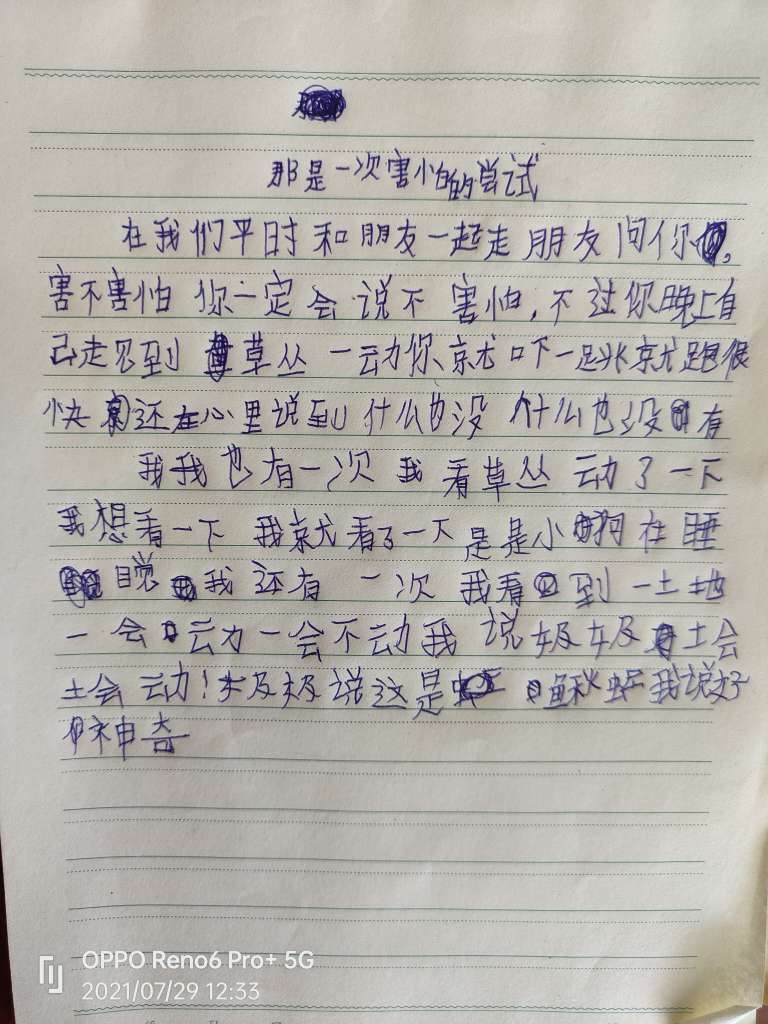 那是一次害怕的尝试
在我们平时和朋友一起走朋友问你,
害不害怕 你一定会说不害怕,不过你晚上自
己走见到草丛一动你就吓一跳就跑很
快还在心里说到什么也没什么也没有
我我也有一次我看草丛动了一下
我想看一下我就看了一下是是小狗在睡
觉我还有一次我看到一土地
一会动一会不动我说极极土会
土会动!极极说这是 蚯我说好
神奇
OPPO Reno6 Pro+ 5G
2021/07/29 12:33